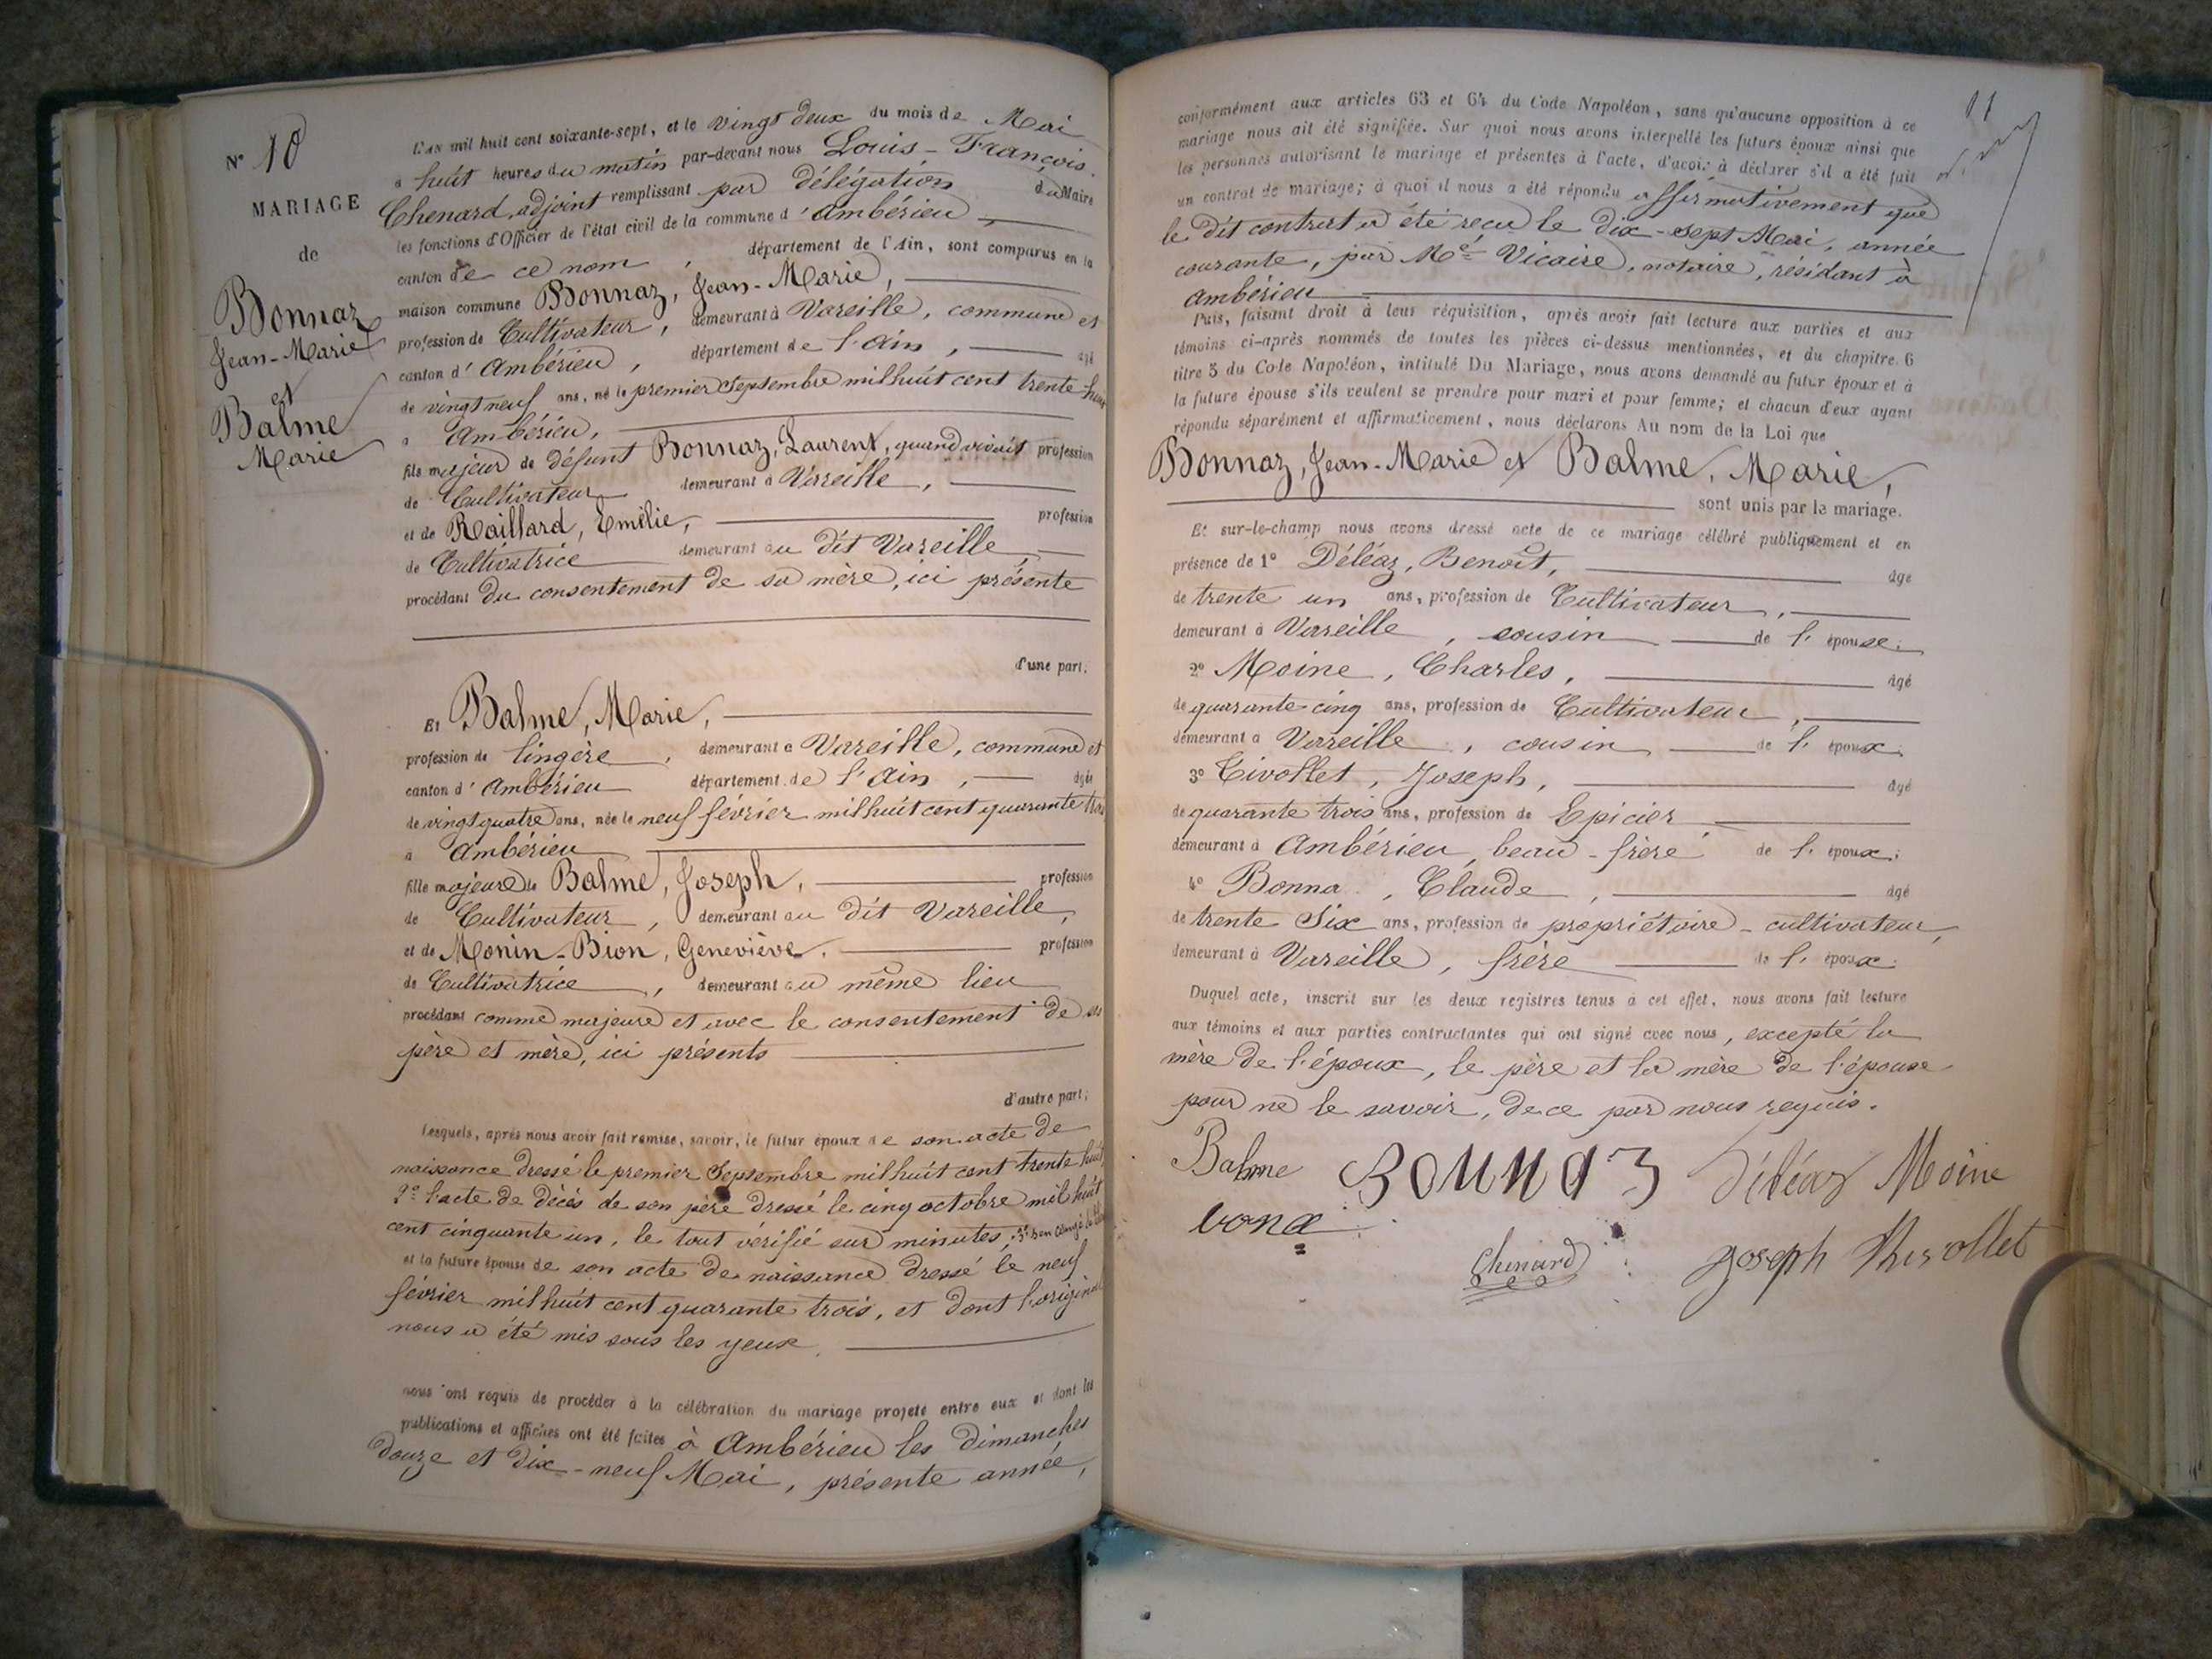 N° 10
MARIAGE
de
Bonnaz
Jean-Marie
et
Balme
Marie
L'an mil huit cent soixante-sept, et le vingt deux du mois de Mai
à huit heures du matin par-devant nous Louis-François
Chenard, adjoint remplissant par délégation du Maire
les fonctions d'Officier de l'état civil de la commune d'Ambérieu,
canton de ce nom, département de l'Ain, sont comparus en la
maison commune Bonnaz, Jean-Marie,
profession de Cultivateur, demeurant à Vareille, commune et
canton d'Ambérieu, département de l'Ain, âgé
de vingt neuf ans, né le premier Septembre mil huit cent trente-huit
à Ambérieu,
fils majeur de défunt Bonnaz, Laurent, quand vivait profession
de Cultivateur demeurant à Vareille,
et de Raillard, Emélie, profession
de Cultivatrice demeurant au dit Vareille,
procédant du consentement de sa mère, ici présente
d'une part.
Et Balme, Marie,
profession de lingère, demeurant à Vareille, commune et
canton d'Ambérieu département de l'Ain, âgée
de vingt quatre ans, née le neuf février mil huit cent quarante trois
à Ambérieu
fille majeure de Balme, Joseph, profession
de Cultivateur, demeurant au dit Vareille,
et de Monin-Bion, Geneviève, profession
de Cultivatrice, demeurant au même lieu
procédant comme majeure et avec le consentement de ses
père et mère, ici présents
d'autre part;
Lesquels, après nous avoir fait remise, savoir, le futur époux de son acte de
naissance dressé le premier Septembre mil huit cent trente huit
2° l'acte de décès de son père dressé le cinq octobre mil huit
cent cinquante un, le tout vérifié sur minutes, 3° son congé
et la future épouse de son acte de naissance dressé le neuf
février mil huit cent quarante trois, et dont l'original
nous a été mis sous les yeux.
nous ont requis de procéder à la célébration du mariage projeté entre eux et dont les
publications et affiches ont été faites à Ambérieu les dimanches
douze et dix-neuf Mai, présente année,
conformément aux articles 63 et 64 du Code Napoléon, sans qu'aucune opposition à ce
mariage nous ait été signifiée. Sur quoi nous avons interpellé les futurs époux ainsi que
les personnes autorisant le mariage et présentes à l'acte, d'avoir à déclarer s'il a été fait
un contrat de mariage; à quoi il nous a été répondu affirmativement que
le dit contrat a été reçu le dix-sept Mai, année
courante, par Me Vicaire, notaire, résidant à
Ambérieu
Puis, faisant droit à leur réquisition, après avoir fait lecture aux parties et aux
témoins ci-après nommés de toutes les pièces ci-dessus mentionnées, et du chapitre 6
titre 5 du Code Napoléon, intitulé Du Mariage, nous avons demandé au futur époux et à
la future épouse s'ils veulent se prendre pour mari et pour femme; et chacun d'eux ayant
répondu séparément et affirmativement, nous déclarons Au nom de la Loi que
Bonnaz, Jean-Marie et Balme, Marie,
sont unis par le mariage.
Et sur-le-champ nous avons dressé acte de ce mariage célébré publiquement et en
présence de 1° Déléaz, Benoît, âgé
de trente un ans, profession de Cultivateur,
demeurant à Vareille, cousin de l'épouse;
2° Moine, Charles, âgé
de quarante-cinq ans, profession de Cultivateur,
demeurant à Vareille, cousin de l'époux
3° Tivollet, Joseph, âgé
de quarante trois ans, profession de Epicier
demeurant à Ambérieu, beau-frère de l'époux;
4° Bonna, Claude, âgé
de trente Six ans, profession de propriétaire-cultivateur,
demeurant à Vareille, frère de l'époux.
Duquel acte, inscrit sur les deux registres tenus à cet effet, nous avons fait lecture
aux témoins et aux parties contractantes qui ont signé avec nous, excepté la
mère de l'époux, le père et la mère de l'épouse
pour ne le savoir, de ce par nous requis.
Balme BONNAZ Déléaz Moine
bona
Chenard Joseph Thivollet